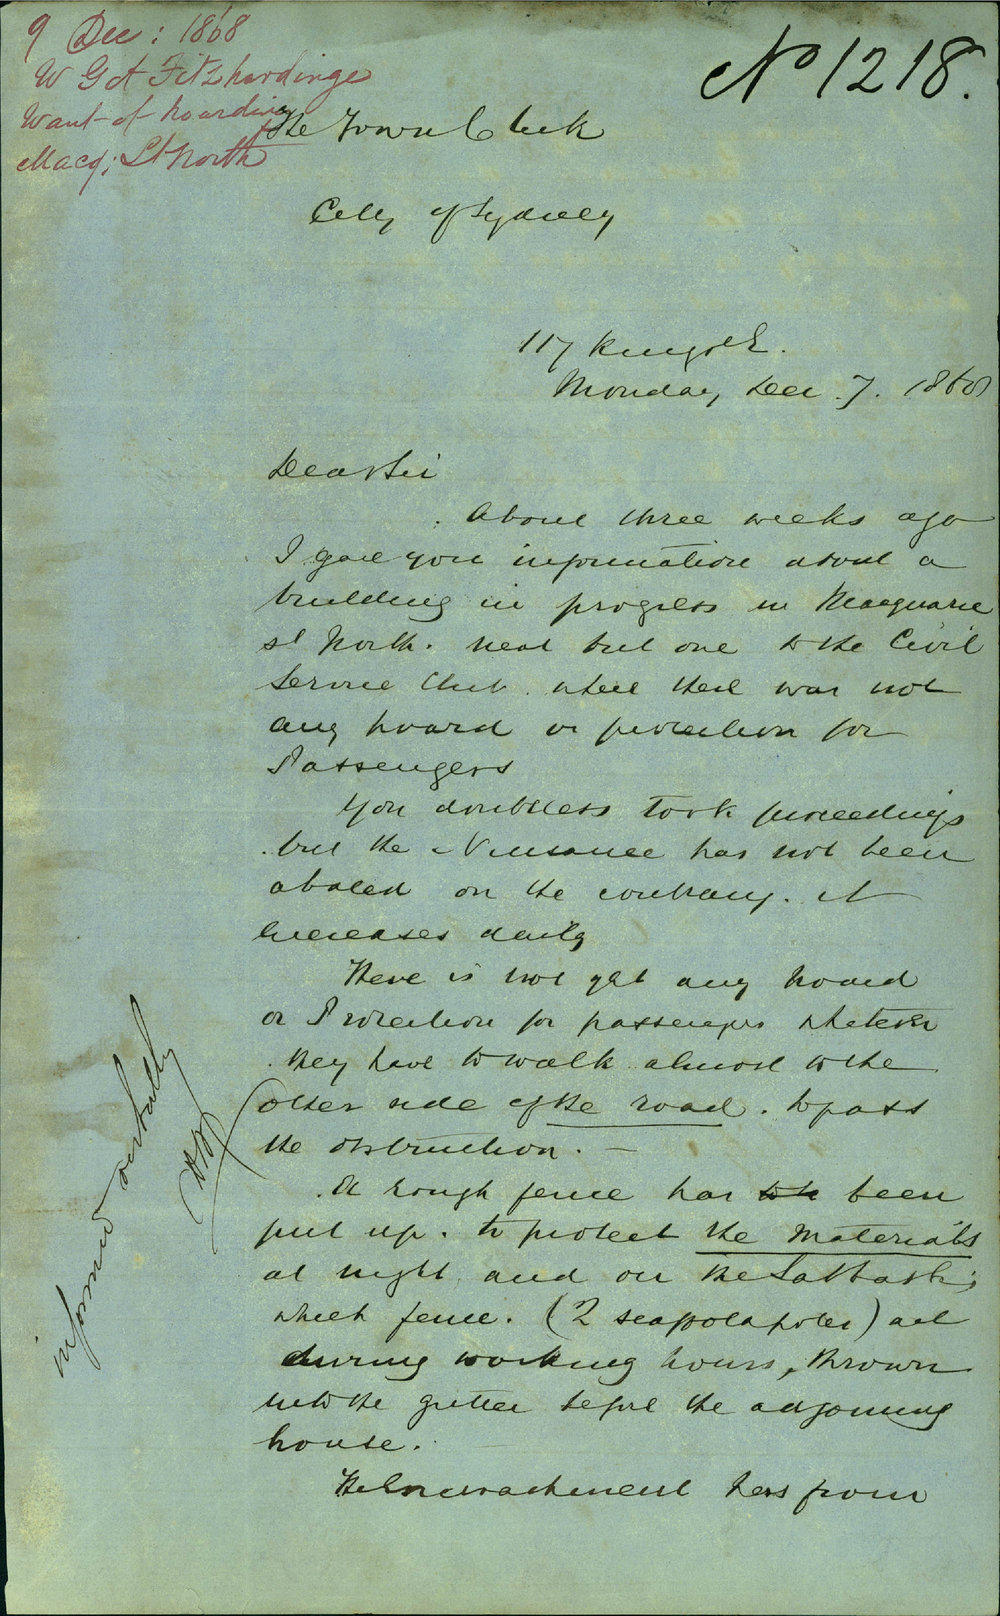 9 Dec: 1868
W G A Fitzhardinge
Want of hoarding
Macq; St North
No 1218.
The Town Clerk
City of Sydney
117 King St.
Monday Dec 7. 1868
Dear Sir
About three weeks ago
I gave you information about a
building in progress in Macquarie
St North. next but one to the Civil
Service Club. where there was not
any hoard or protection for
Passengers
You doubtless took proceedings
but the Nuisance has not been
abated on the contrary. it
increases daily
There is not yet any hoard
or Protection for passengers whatever
They have to walk almost to the
other side of the road. to pass
the obstruction. —
A rough fence has been
put up. to protect the materials
at night and on the Sabbath;
which fence. (2 scaffold poles) are
during working hours, thrown
into the gutter before the adjoining
house.
The Encroachment has from
informed verbally